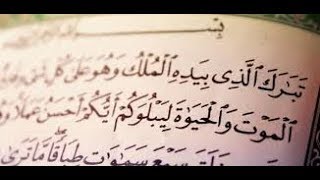 بِسْـ
تَبَٰرَكَ ٱلَّذِى بِيَدِهِ ٱلْمُلْكُ وَهُوَ عَلَىٰ كُلِّ شَىْءٍ
ٱلْمَوْتَ وَٱلْحَيَوٰةَ لِيَبْلُوَكُمْ أَيُّكُمْ أَحْسَنُ عَمَلًا وَهُوَ
سَبْعَ سَمَٰوَٰتٍ طِبَاقًا مَّا تَرَىٰ